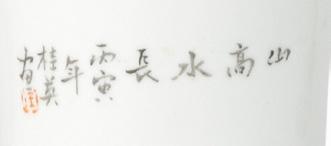 山高水長
丙寅
年
桂英